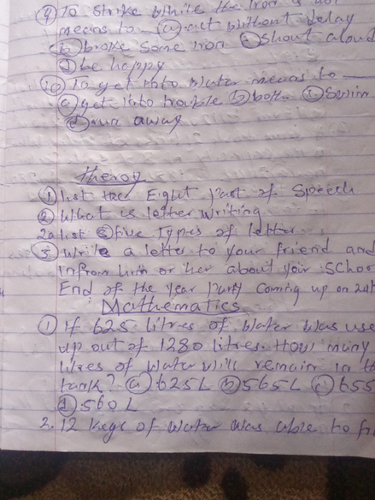 ⑨ To strike while the iron is hot
means to ___ ⓐ act without delay
ⓑ broke some iron ⓒ shout aloud
ⓓ be happy
⑩ To get into water means to ___
ⓐ get into trouble ⓑ boil ⓒ swim
ⓓ run away
Theroy
① list the Eight part of speech
② What is letter writing
2a list five Types of letter
③ Write a letter to your friend and
Infrom him or her about your School
End of the year party coming up on
Mathematics
① If 625 litres of water was use
up out of 1280 litres. How many
litres of water will remain in the
tank? ⓐ 625L ⓑ 565L ⓒ 655
ⓓ 560L
2. 12 kegs of water was able to